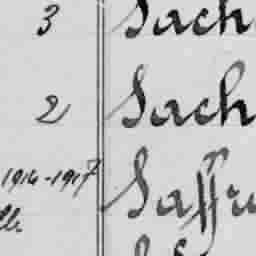 3 Sach
2 Sach
1914-1917 Saffr
lle